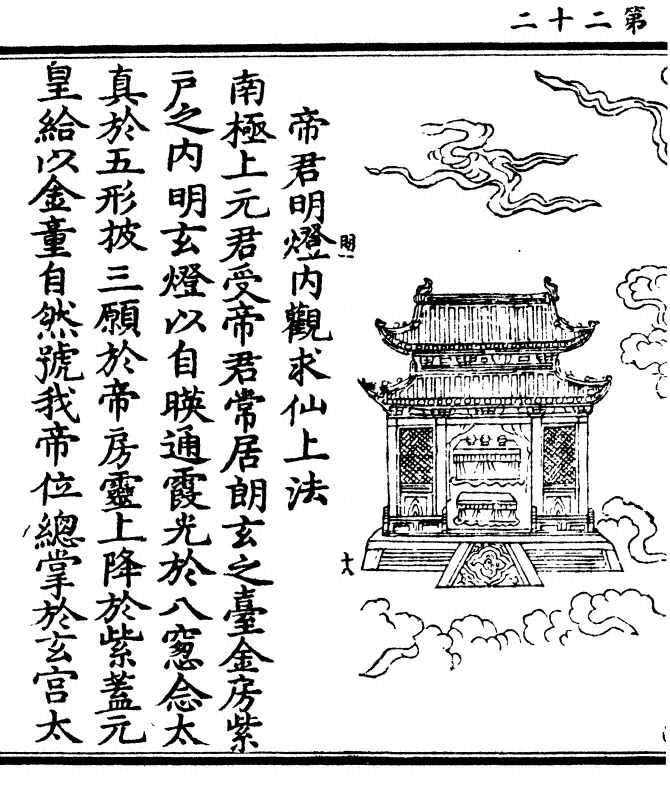 第二十二
帝君明燈內觀求仙上法
南極上元君受帝君常居朗玄之臺金房紫
戶之內明玄燈以自暎通霞光於八窓念太
真於五形披三願於帝房靈上降於紫蓋元
皇給以金童自然號我帝位總掌於玄宮太